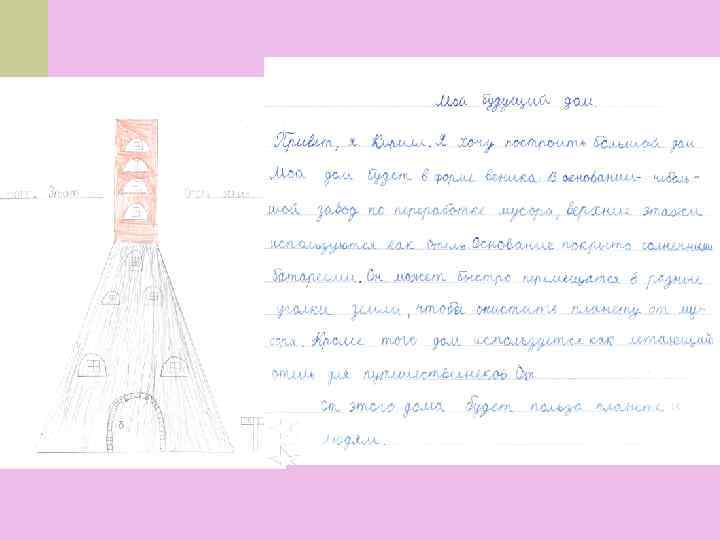 Мой будущий дом.
Привет, я Карим. Я хочу построить большой дом
Мой дом будет в форме веника. В основании - неболь-
шой завод по переработке мусора, верхние этажи
используются как отель. Основание покрыто солнечными
батареями. Он может быстро перемещатся в разные
уголки земли, чтобы очистить планету от му-
сора. Кроме того дом используется как летающий
отель для путешественеков. От
от этого дома будет польза планете и
людям.